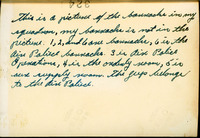 324
This is a picture of the barracks in my
squadron, my barracks is not in the
picture. 1, 2, and 6 are barracks, 6 is the
Air Police barracks. 3 is Air Police
Operations, 4 is the orderly room, 5 is
our supply room. The guys belongs
to the Air Police.